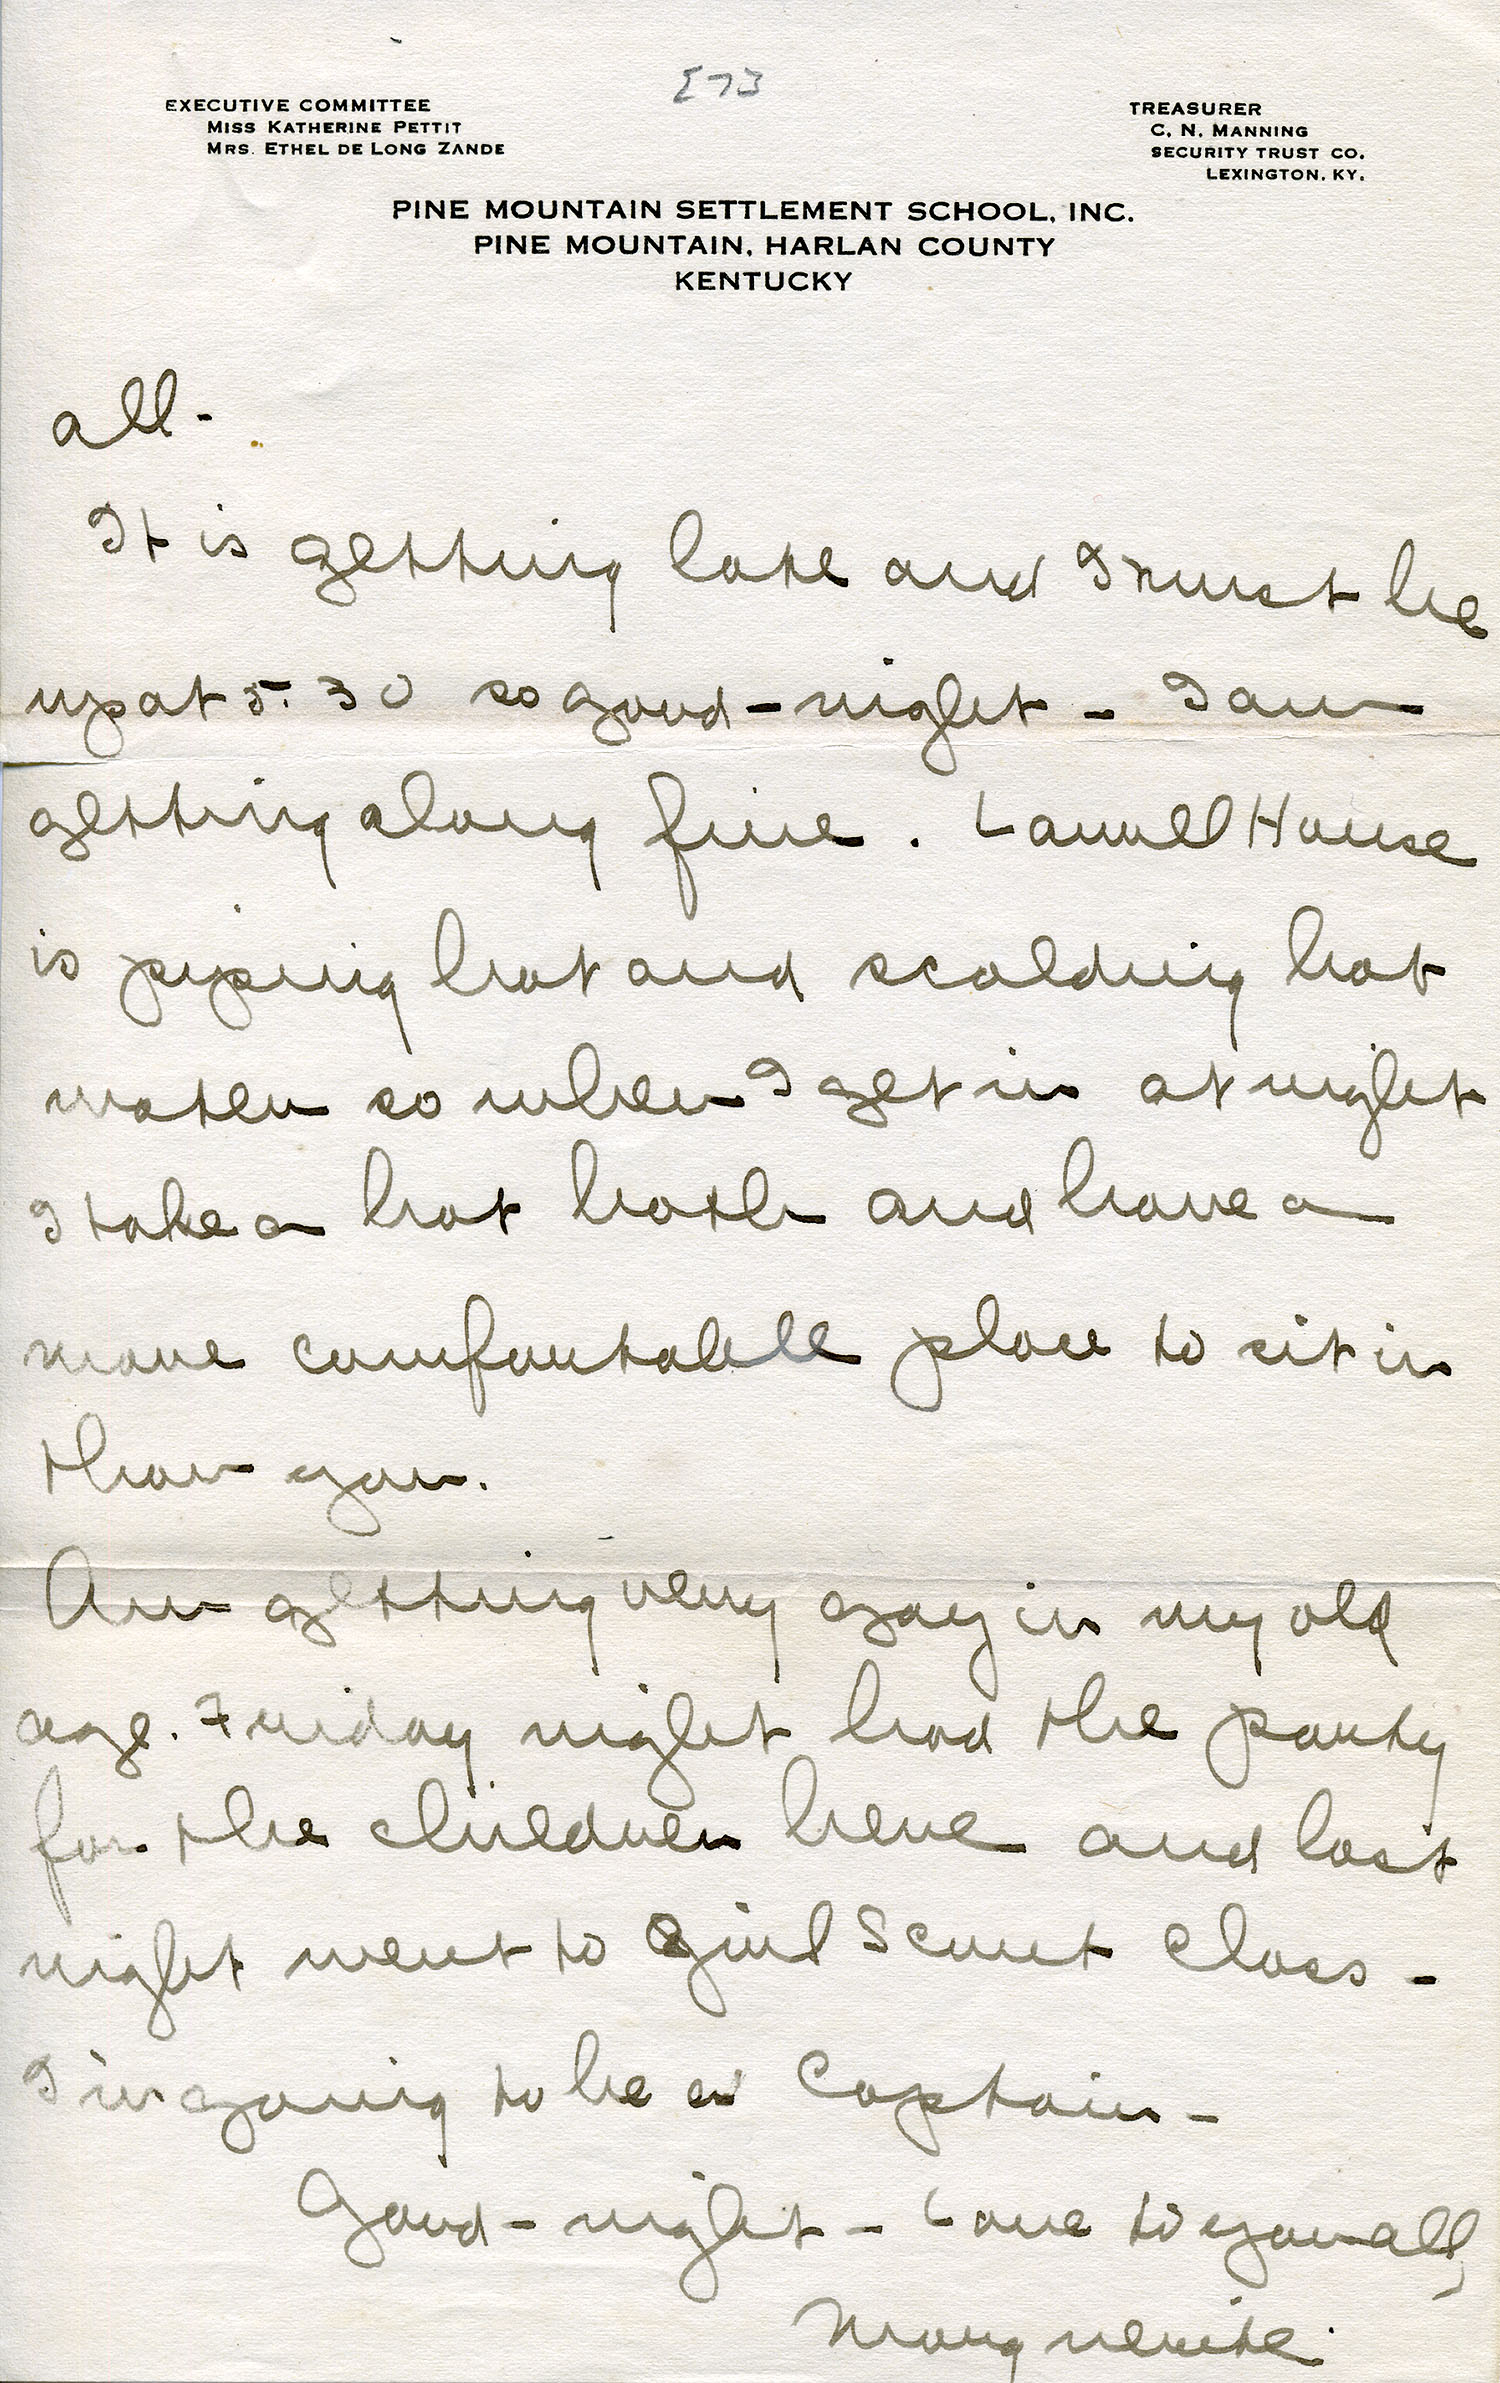 [7]
EXECUTIVE COMMITTEE
MISS KATHERINE PETTIT
MRS. ETHEL DE LONG ZANDE
TREASURER
C. N. MANNING
SECURITY TRUST CO.
LEXINGTON, KY.
PINE MOUNTAIN SETTLEMENT SCHOOL, INC.
PINE MOUNTAIN, HARLAN COUNTY
KENTUCKY
all-
It is getting late and I must be
up at 5.30 so good-night - I am
getting along fine. Laurel House
is piping hot and scalding hot
water so when I get in at night
I take a hot bath and have a
more comfortable place to sit in
than you.
Am getting very gay in my old
age. Friday night had the party
for the children here and last
night went to Girl Scout class -
I'm going to be a Captain -
Good-night - Love to you all,
Marguerite.